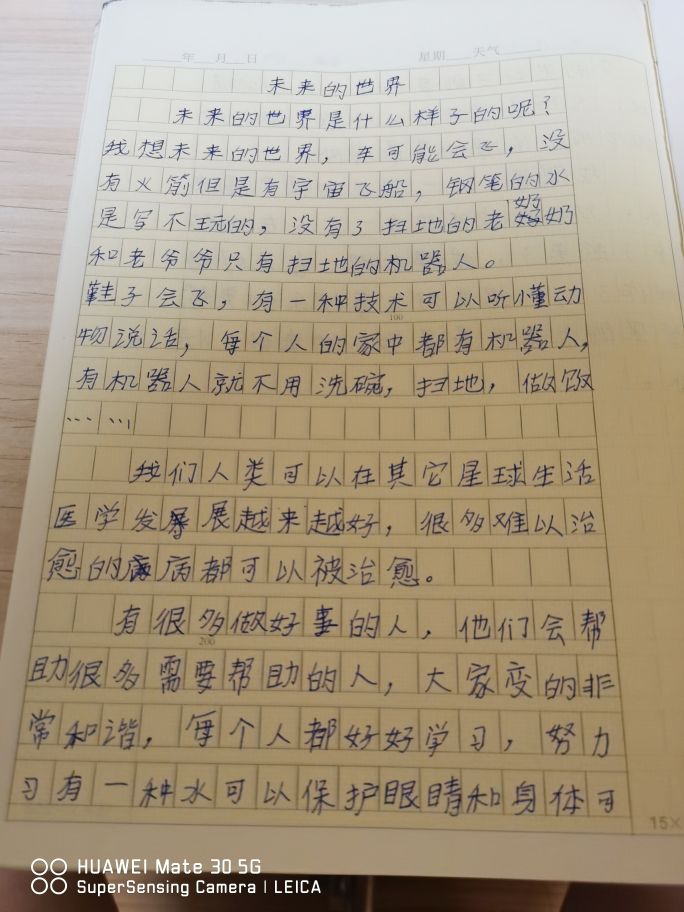 年 月 日 星期 天气
未来的世界
未来的世界是什么样子的呢？
我想未来的世界，车可能会飞，没
有火箭但是有宇宙飞船，钢笔的水
是写不玩的，没有了扫地的老奶奶
和老爷爷只有扫地的机器人。
鞋子会飞，有一种技术可以听懂动
100
物说话，每个人的家中都有机器人，
有机器人就不用洗碗，扫地，做饭
……
我们人类可以在其它星球生活
医学发展越来越好，很多难以治
愈的病都可以被治愈。
有很多做好事的人，他们会帮
200
助很多需要帮助的人，大家变的非
常和谐，每个人都好好学习，努力
习有一种水可以保护眼睛和身体可
15×
HUAWEI Mate 30 5G
SuperSensing Camera | LEICA